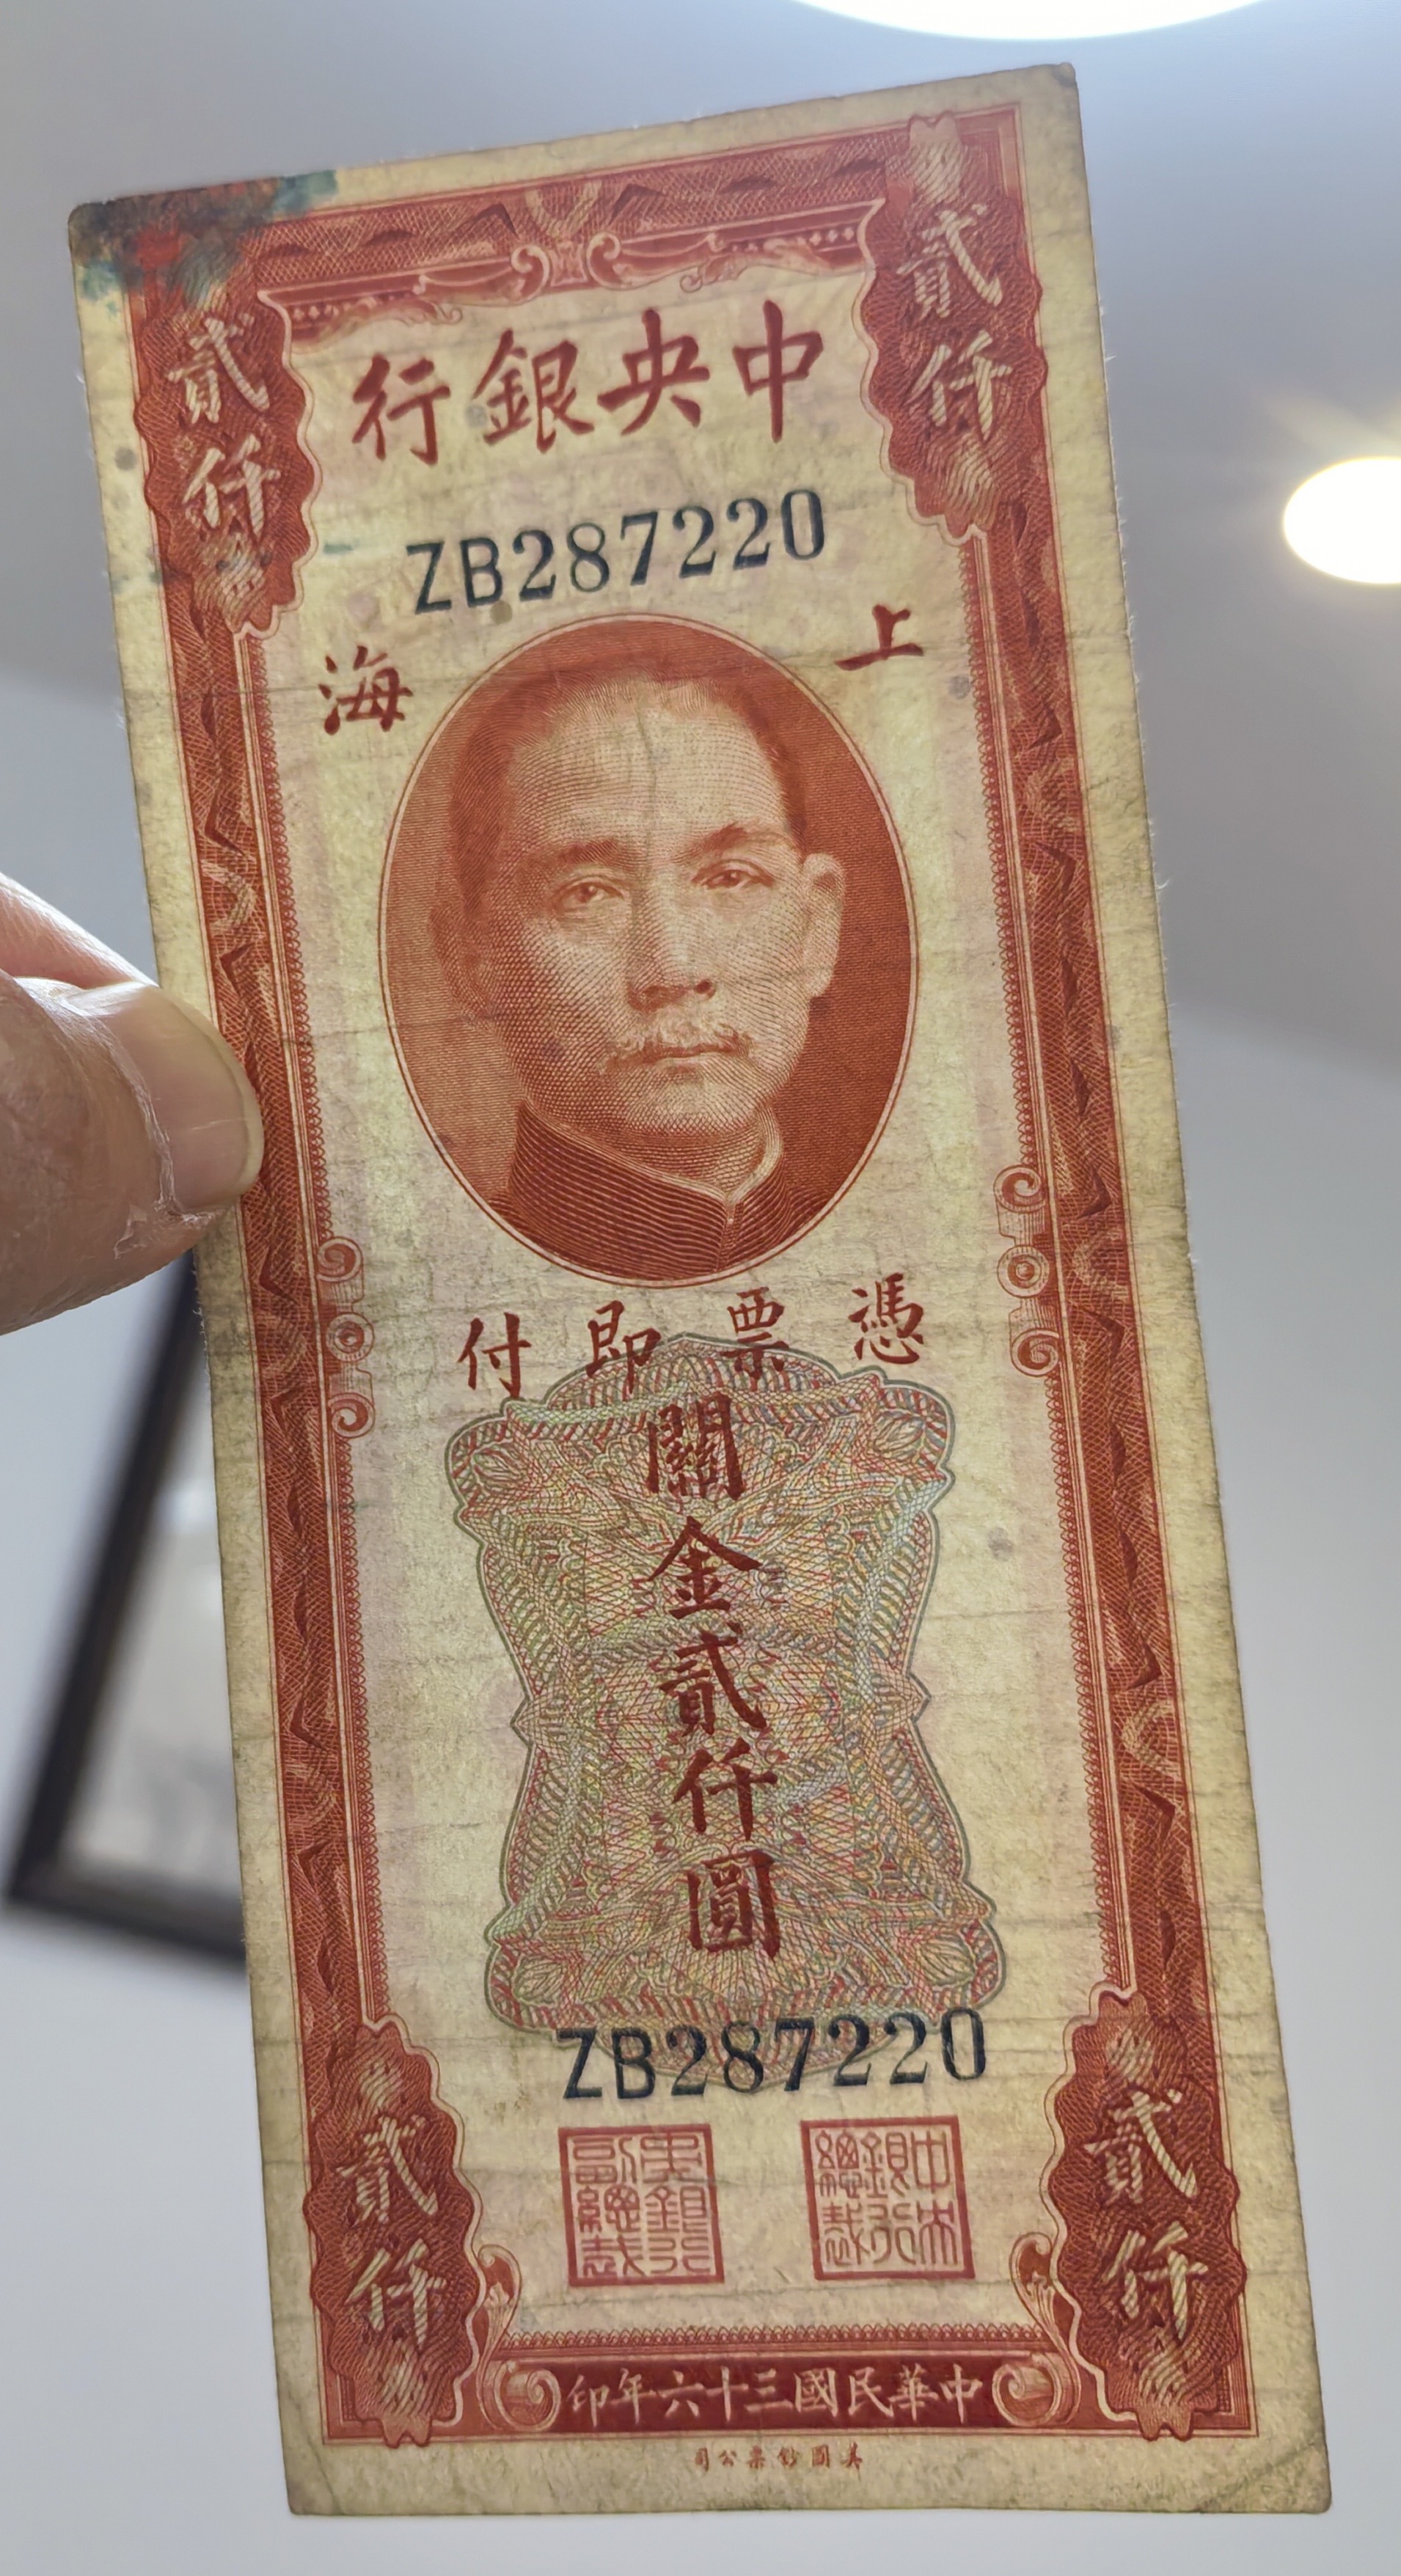 貳仟
貳仟
中央銀行
ZB287220
上海
憑票即付
關金貳仟圓
ZB287220
中央銀行總裁
央銀行副總裁
貳仟
貳仟
中華民國三十六年印
美國鈔票公司